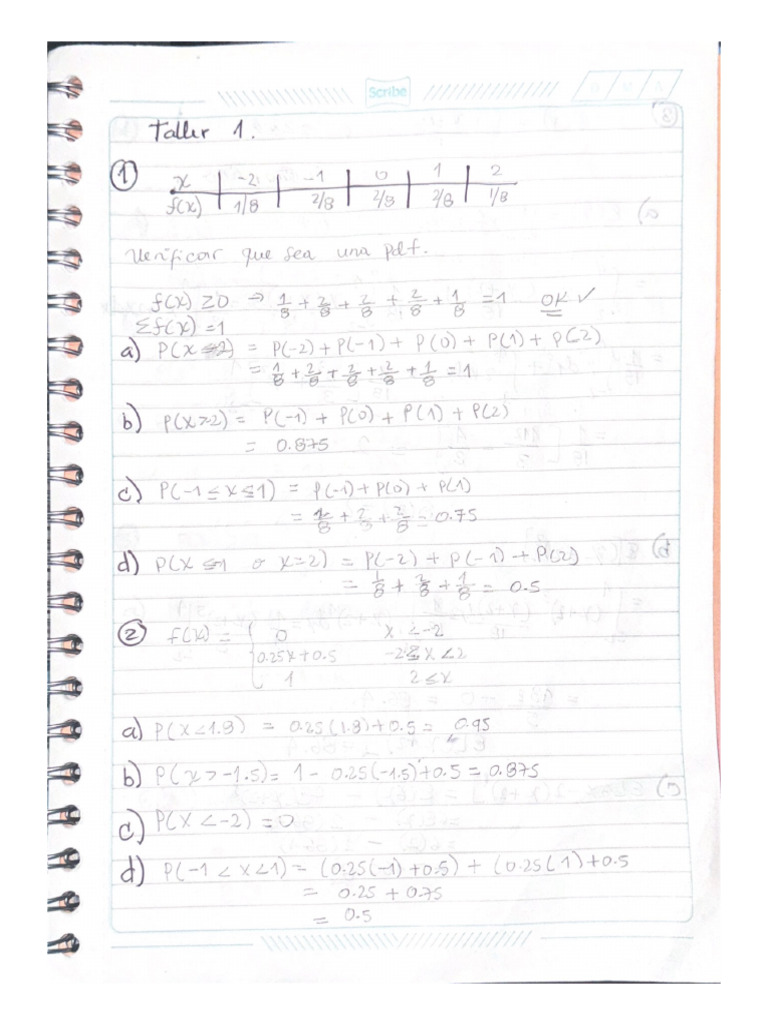 Scribe
Taller 1.
① x | -2 | -1 | 0 | 1 | 2
f(x) | 1/8 | 2/8 | 2/8 | 2/8 | 1/8
Verificar que sea una pdf.
f(x) ≥ 0 → 1/8 + 2/8 + 2/8 + 2/8 + 1/8 = 1 OK ✓
Σf(x) = 1
a) P(x ≤ 2) = P(-2) + P(-1) + P(0) + P(1) + P(2)
= 1/8 + 2/8 + 2/8 + 2/8 + 1/8 = 1
b) P(x > 2) = P(-1) + P(0) + P(1) + P(2)
= 0.875
c) P(-1 ≤ x ≤ 1) = P(-1) + P(0) + P(1)
= 2/8 + 2/8 + 2/8 = 0.75
d) P(x ≤ -1 o x = 2) = P(-2) + P(-1) + P(2)
= 1/8 + 2/8 + 1/8 = 0.5
② f(x) = { 0 x < -2
0.25x + 0.5 -2 ≤ x < 2
1 2 ≤ x
a) P(x < 1.8) = 0.25(1.8) + 0.5 = 0.95
b) P(x > -1.5) = 1 - 0.25(-1.5) + 0.5 = 0.875
c) P(x < -2) = 0
d) P(-1 < x < 1) = (0.25(-1) + 0.5) + (0.25(1) + 0.5
= 0.25 + 0.75
= 0.5